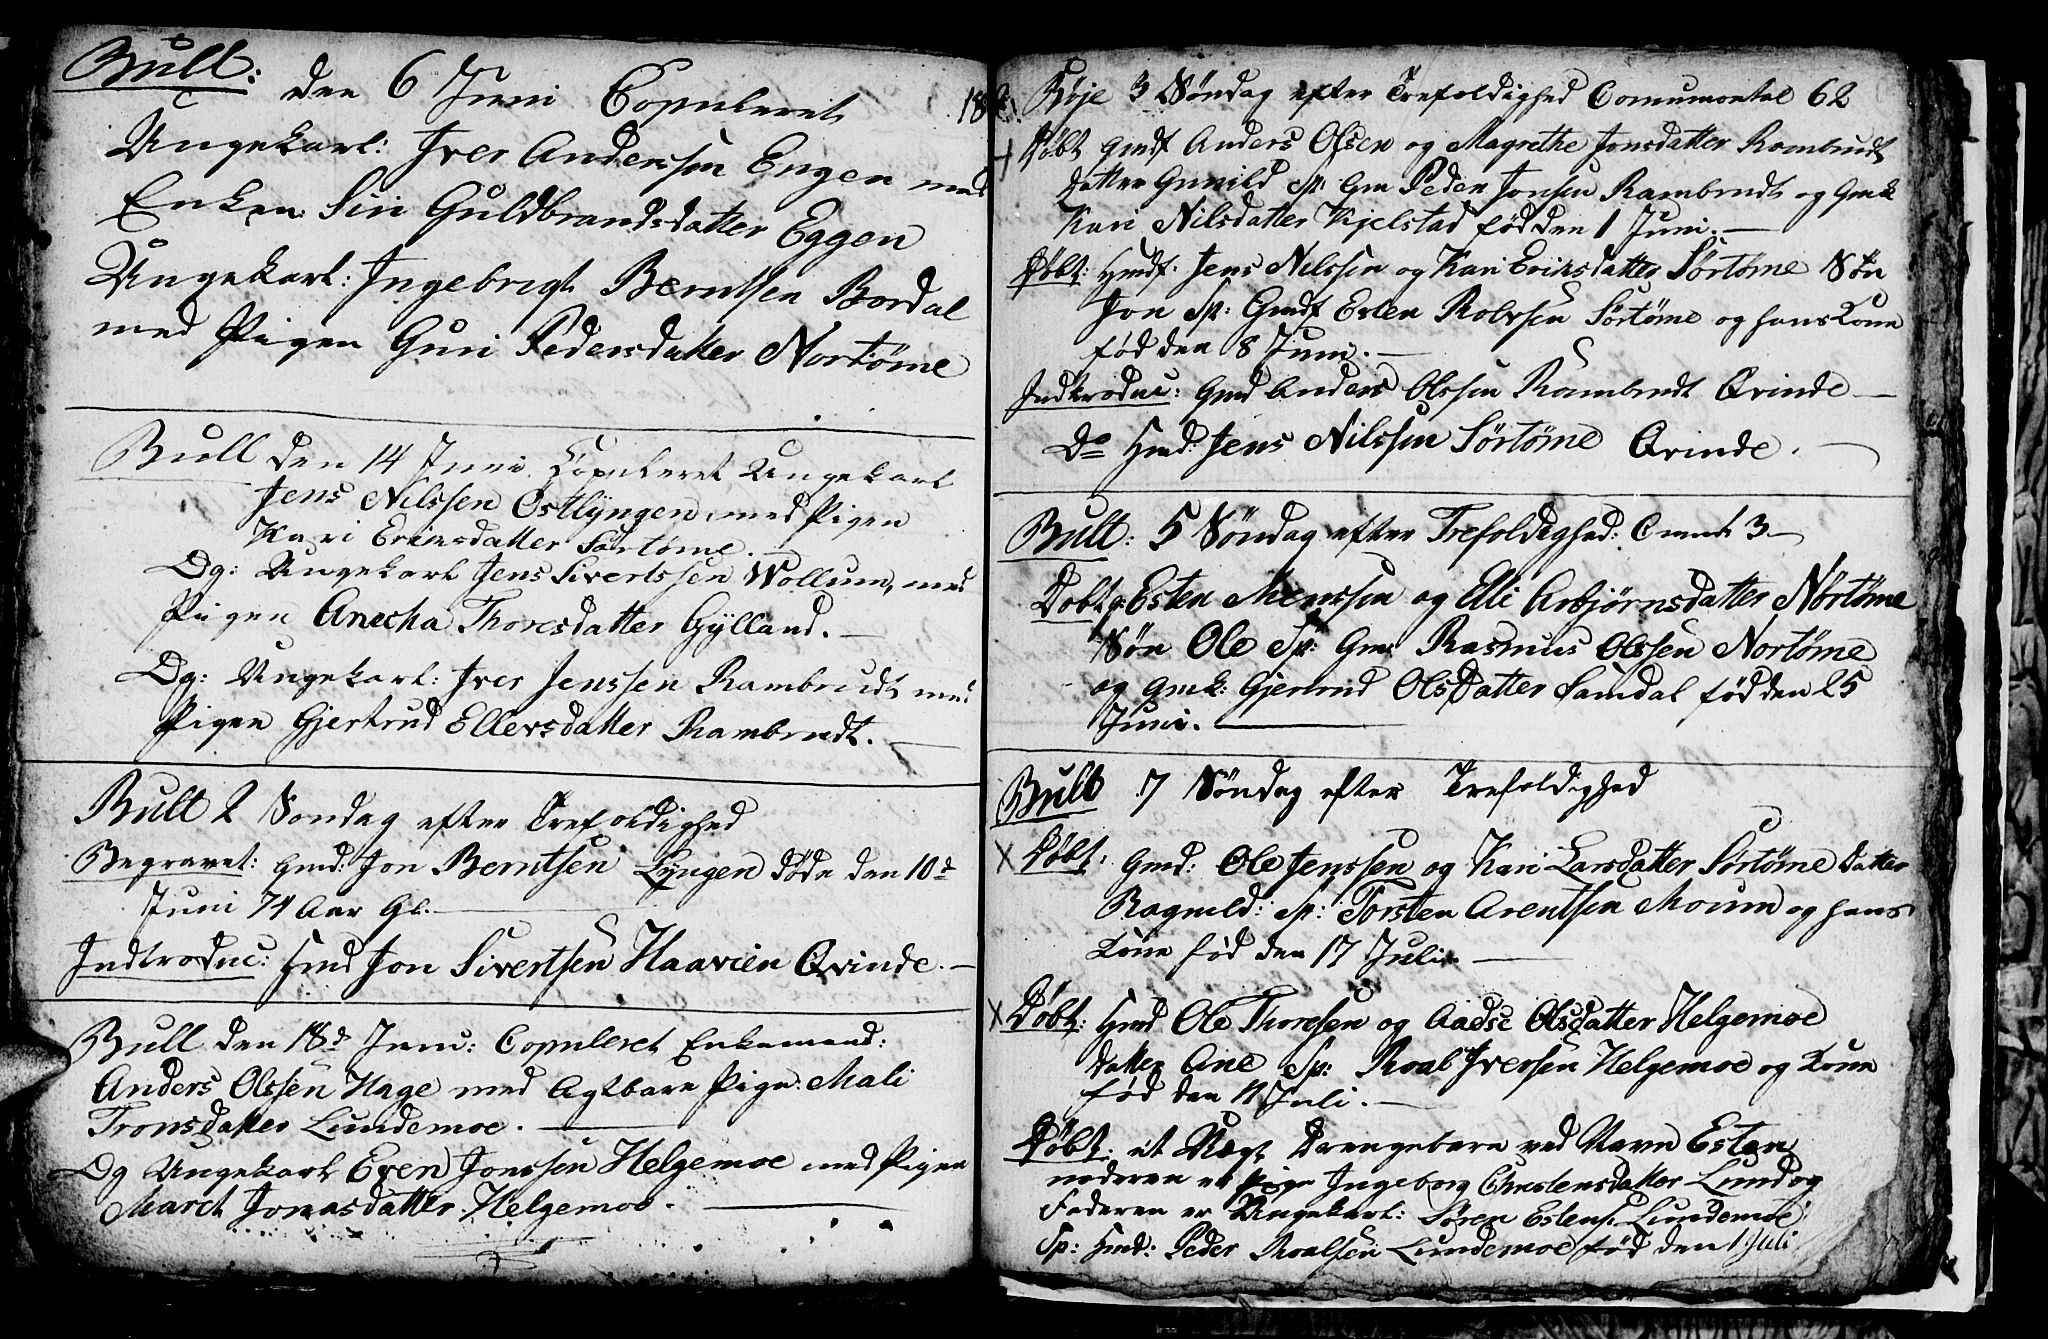 Bull:
den 6 Juni Copuleret
Ungekarl: Iver Andersen Engen med
Enken: Siri Guldbrandsdatter Eggen
Ungekarl: Ingebrigt Berntsen Bordal
med Pigen Guri Pedersdatter Nortöme
Bull den 14 Juni Copuleret Ungekarl
Jens Nilssen Ostlÿngen, med Pigen
Kari Ericsdatter Sörtöme.
Og: Ungekarl Jens Sivertssen Wollum, med
Pigen Anecha Thoresdatter Gÿlland.
Og: Ungekarl: Iver Jenssen Rambrudt med
Pigen Gjertrud Ellersdatter Rambrudt.
Bull 2 Söndag efter Trefoldighed
Begravet: Gmd: Jon Berntsen Lÿngen döde den 10de
Juni 74 Aar Gl.
Indtroduc: Hmd Jon Sivertsen Haavien Qvinde.
Bull den 18de Juni: Copuleret Enkemand:
Anders Olssen Hage med Agtbare Pige: Mali
Tronsdatter Lundemoe.
Og Ungekarl Even Jonssen Helgemoe med Pigen
Maret Jonasdatter Helgemoe.
Röje 3 Söndag efter Trefoldighed 62
Döbt Gmdf Anders Olsen og Magrethe Jonsdatter Rambrudt
Datter Gunild Sp: Gm Peder Jonsen Rambrudt og Gmk
Kari Nilsdatter Kjelstad föd den 1 Juni.
Döbt: Hmdf: Jens Nilssen og Kari Ericsdatter Sörtöme Sön
Jon Sp: Gmdf Esten Robssen Sörtöme og hans Kone
föd den 8 Juni.
Indtroduc: Gmd Anders Olssen Rambrudt Qvinde
Do Hmd: Jens Nilssen Sörtöme Qvinde.
Bull: 5 Söndag efter Trefoldighed: 3
Döbt Esten Monssen og Elli Asbjörnsdatter Nörtöme
Sön Ole Sp: Gm: Rasmus Olssen Nortöme
og Gmk: Gjertrud Olsdatter Samdal föd den 25
Juni.
Bull 7 Söndag efter Trefoldighed
X Döbt: Gmd: Ole Jenssen og Kari Larsdatter Sörtöme Datter
Ragnild: Sp: Torsten Arentsen Moum og hans
Kone föd den 17 Juli
X Döbt: Hmd Ole Thoresen og Aadse Olsdatter Helgemoe
Datter Ane Sp: Roal Iversen Helgemoe og Kone
föd den 11 Juli.
Döbt: et Uægt Drengebarn ved Navn Esten
moderen er Pige Ingeborg Christensdatter Lund og
Faderen er Ungekarl: Sören Estens: Lundemoe
Sp: Hmd: Peder Roalsen Lundemoe föd den 1 Juli